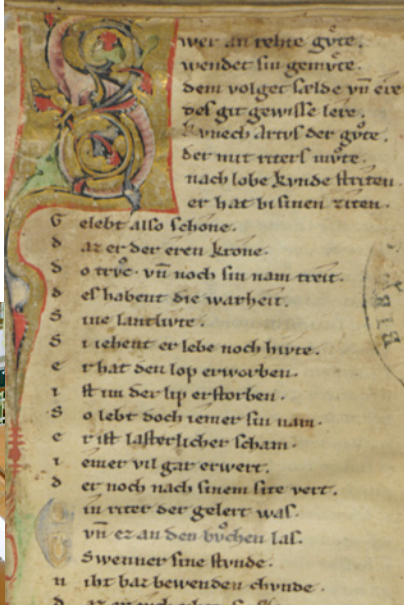 Swer an rehte gůte.
wendet sin gemv̊te.
dem volget sælde vn̄ ere
des git gewisse lere.
kvnech Artvs der gůte.
der mit riters mv̊te.
nach lobe kvnde striten.
er hat bi sinen ziten.
G elebt also schone.
d az er der eren krone.
d o trv̊c. vn̄ noch sin nam treit.
d es habent die warheit.
S ine lantlivte.
S i iehent er lebe noch hivte.
e r hat den lop erworben.
i st im der lip erstorben.
S o lebt doch iemer sin nam.
e r ist lasterlicher scham.
i emer vil gar erwert.
d er noch nach sinem site vert.
E in riter der gelert was.
vn̄ ez an den bv̊chen las.
Swenner sine stvnde.
n iht baz bewenden chvnde.
BIBL